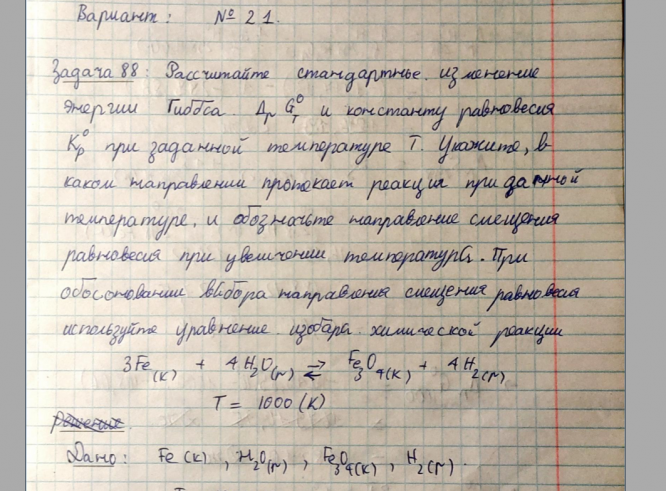 Вариант: № 21.
Задача 88: Рассчитайте стандартные изменение
энергии Гиббса ΔᵣG⁰_T и константу равновесия
K⁰_p при заданной температуре T. Укажите, в
каком направлении протекает реакция при данной
температуре, и обозначьте направление смещения
равновесия при увеличении температуры. При
обосновании выбора направления смещения равновесия
используйте уравнение изобары химической реакции
3Fe(к) + 4H₂O(г) ⇄ Fe₃O₄(к) + 4H₂(г)
T = 1000 (K)
Решение
Дано: Fe(к), H₂O(г), Fe₃O₄(к), H₂(г).